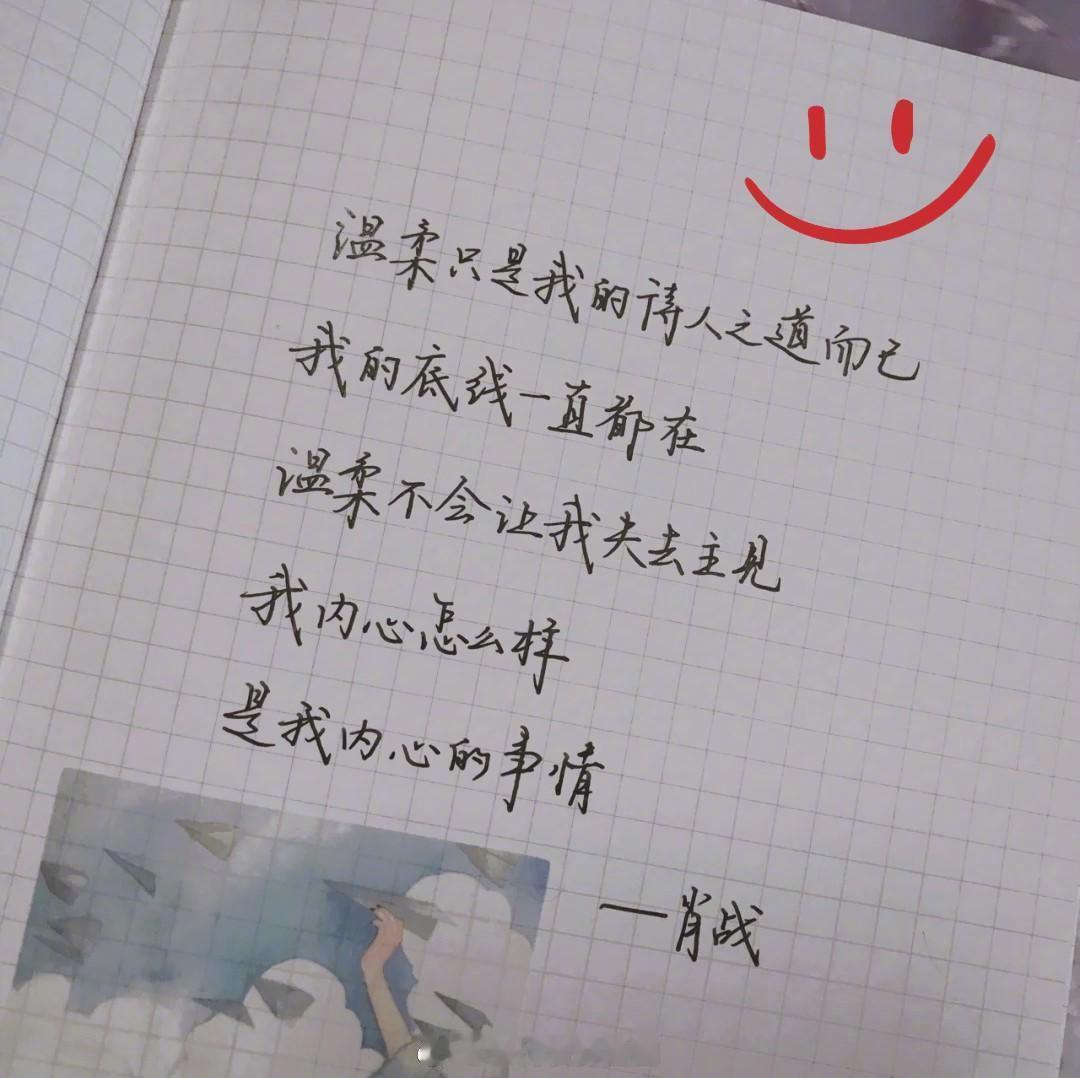 温柔只是我的诗人之道而已
我的底线一直都在
温柔不会让我失去主见
我内心怎么样
是我内心的事情
——肖战